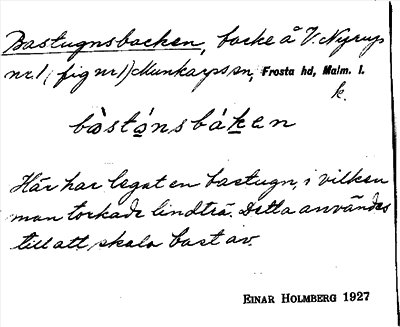 Bastugnsbacken, backe å V. Nyrup
nr. 1, (fig nr 1) Munkarps sn, Frosta hd, Malm. l.
k.
bàstónsbáken
Här har legat en bastugn, i vilken
man torkade lindträ. Detta användes
till att skala bast av.
EINAR HOLMBERG 1927